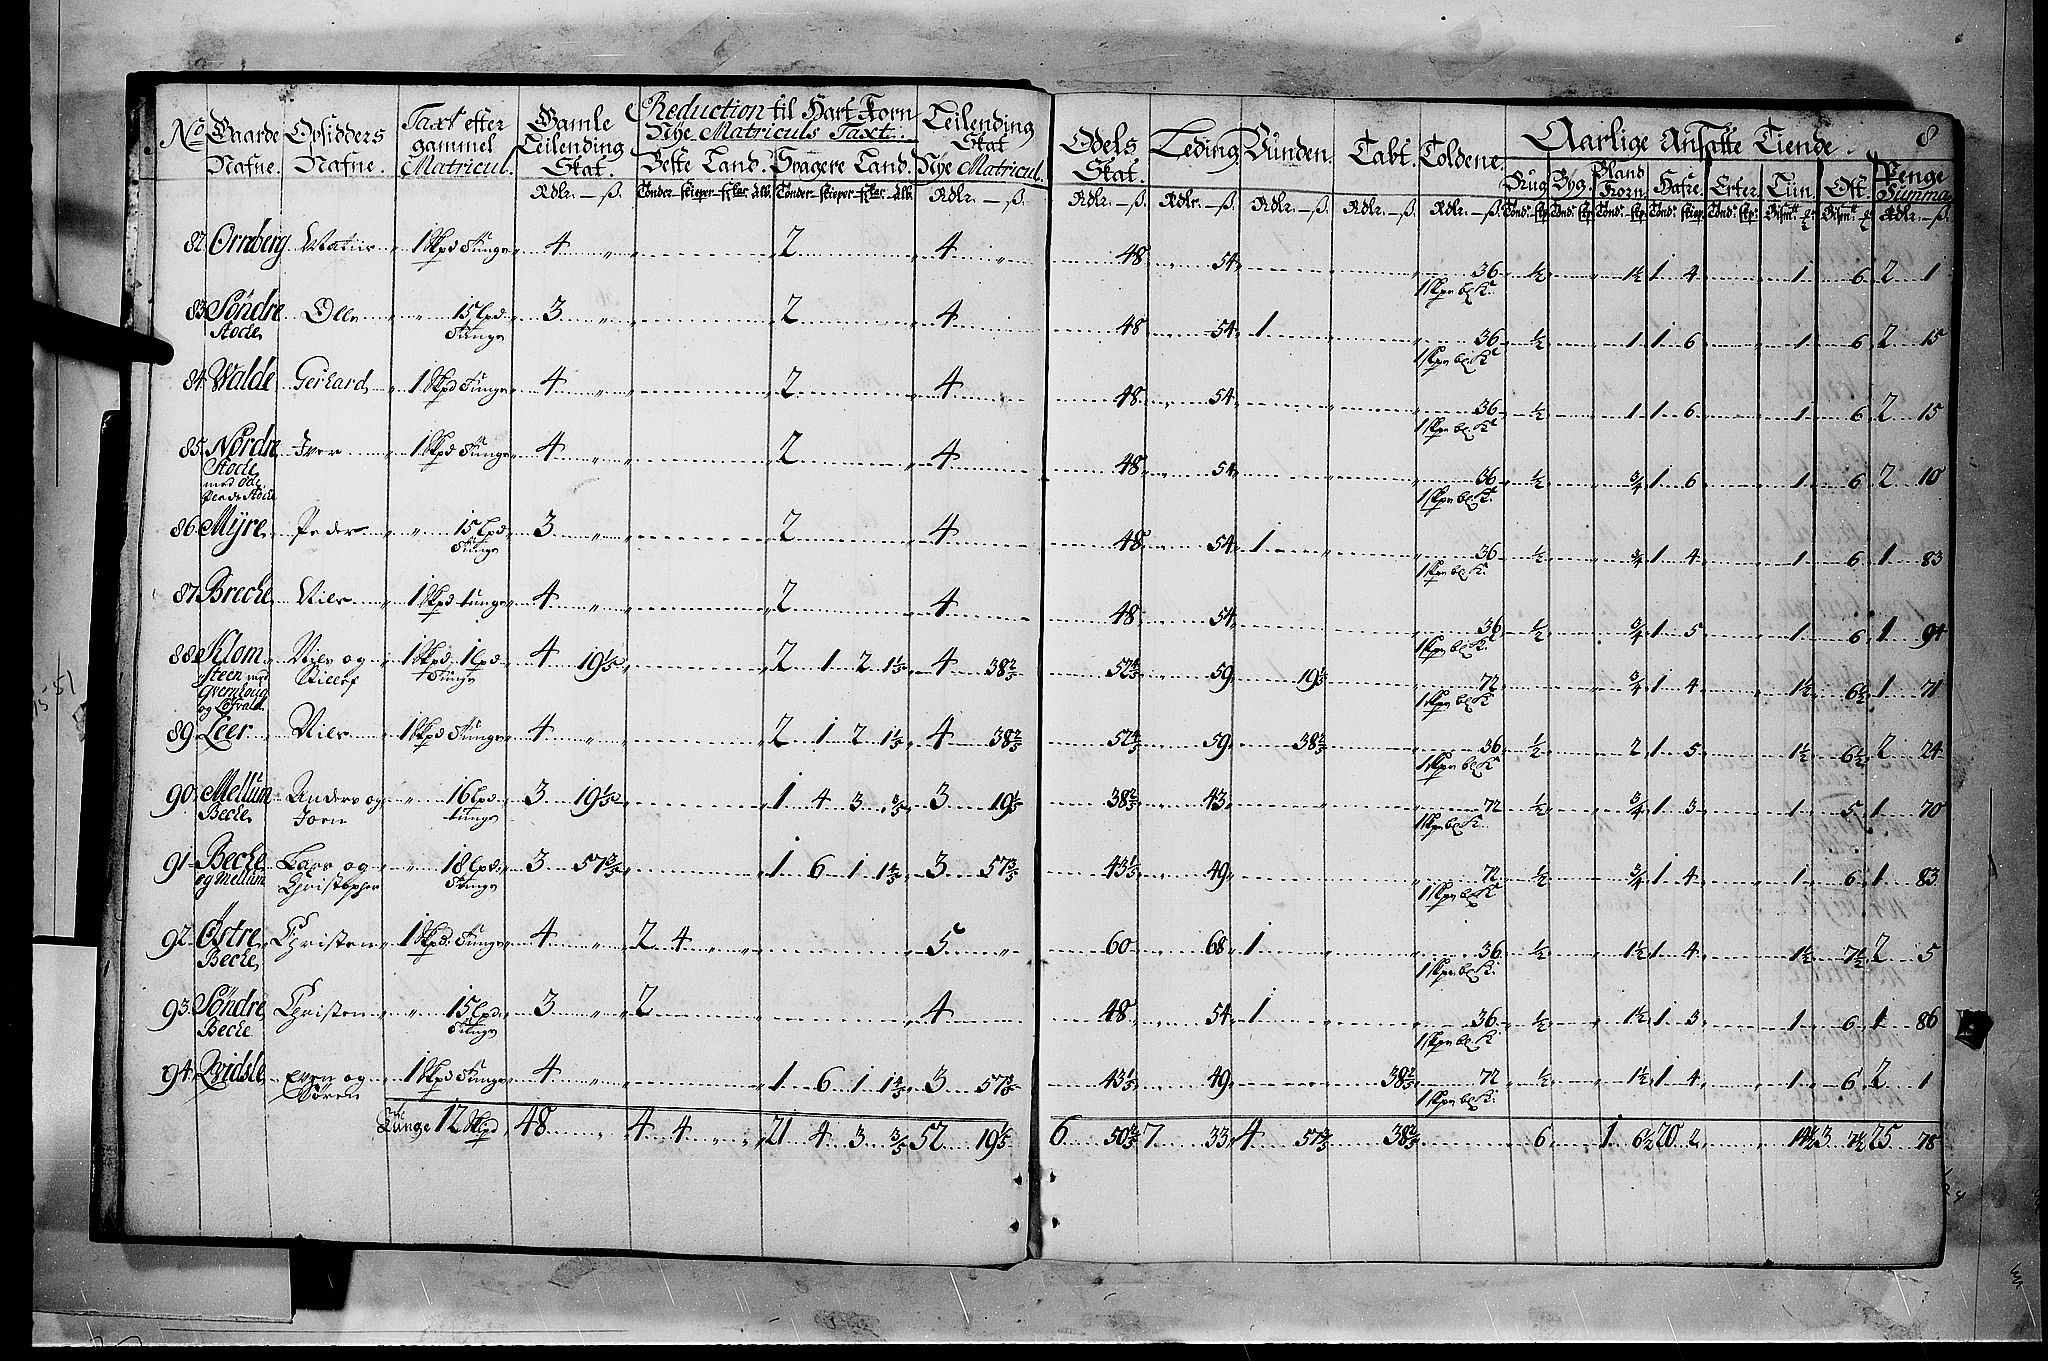 No Gaarde Nafne. Opsidders Nafne. Taxt efter gammel Matricul. Gamle Leilending Skat. Reduction til Hart Korn Nÿe Matriculs Taxt. Leilending Skat Nÿe Matricul. Odels Skat. Leding Vunden. Tabt. Toldene Aarlige Ansatte Tiende. 8
Beste Land. Svagere Land. Rug Byg. Bland Korn. Hafre. Erter. Penge Summa
82 Ornberg 1 Skpd Tunge 4 2 4 48 54 36 ½ 1½ 1 4 1 6 2 1
83 Söndre Stode Olle 15 Lpd Tunge 3 2 4 48 54 1 36 ½ 1 1 6 1 6 2 15
84 Walde Gerhard 1 Skpd Tunge 4 2 4 48 54 36 ½ 1 1 6 1 6 2 15
85 Nordre Stode Iver 1 Skpd Tunge 4 2 4 48 54 36 ½ ¾ 1 6 1 6 2 10
86 Mÿre Peder 15 Lpd Tunge 3 2 4 48 54 1 36 ½ ¾ 1 4 1 6 1 83
87 Breche Niels 1 Skpd tunge 4 2 4 48 54 36 ½ ¾ 1 5 1 6 1 94
88 Klom Steen med og Niels og 1 Skpd 1 Lpd Tunge 4 19⅕ 2 1 2 1⅕ 4 38⅖ 57⅗ 59 19⅕ 72 ¾ 1 4 1½ 6½ 1 71
89 Leer Niels 1 Skpd Tunge 4 2 1 2 1⅕ 4 38⅖ 57⅗ 59 38⅖ 36 ½ 2 1 5 1½ 6½ 2 24
90 Mellum Beche Anders og Jorn 16 Lpd tunge 3 19⅕ 1 4 3 ⅗ 3 19⅕ 38⅖ 43 72 ½ ¾ 1 3 1 5 1 70
91 Beche og Mellum Lars og Christopher 18 Lpd Tunge 3 57⅗ 1 6 1 1⅘ 3 57⅗ 43⅕ 49 72 ½ ¾ 1 4 1 6 1 83
92 Östre Beche Christen 1 Skpd Tunge 4 2 4 5 60 68 1 36 ½ 1½ 1 4 1½ 7½ 2 5
93 Söndre Beche Christen 15 Lpd Tunge 3 2 4 48 54 1 36 ½ 1½ 1 3 1 6 1 86
94 Qvidsle Even og Sören 1 Skpd Tunge 4 1 6 1 1⅘ 3 57⅗ 43⅕ 49 38⅖ 72 ½ 1½ 1 4 1 6 2 1
Tunge 12 Skpd 48 4 4 21 4 3 ⅗ 52 19⅕ 6 50⅖ 7 33 4 57⅗ 38⅖ 6 1 6½ 20 2 14½ 3 7½ 25 78